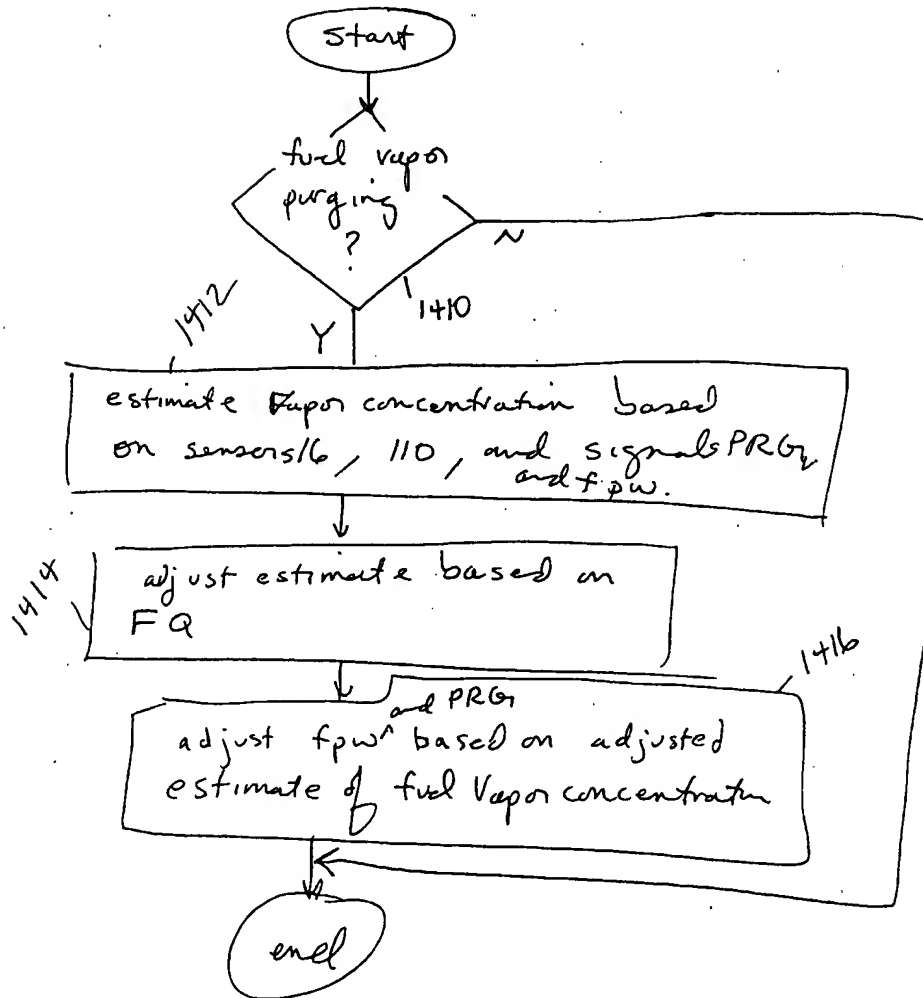 start
fuel vapor
purging
?
N
1410
Y
1412
estimate vapor concentration based
on sensors 16, 110, and signals PRG
and fpw.
1414
adjust estimate based on
FQ
1416
and PRG
adjust fpw^ based on adjusted
estimate of fuel vapor concentration
end